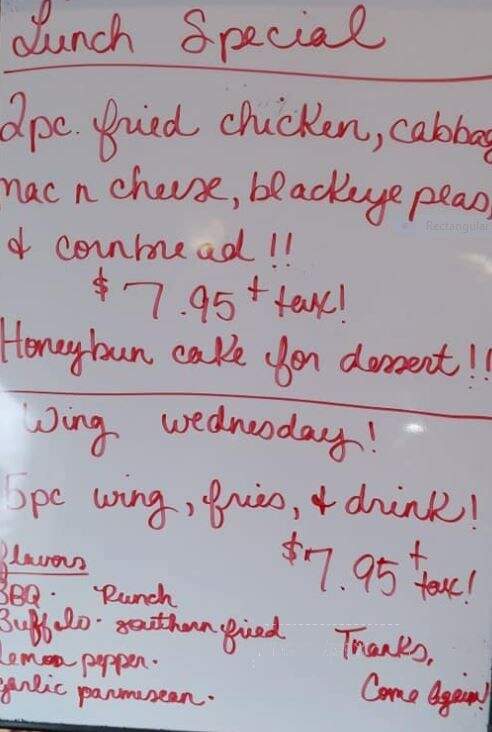 Lunch Special
2pc. fried chicken, cabbag
mac n cheese, blackeye peas,
& cornbread!!
$7.95 + tax!
Honeybun cake for dessert!!
Wing wednesday!
5pc wing, fries, & drink!
$7.95 + tax!
flavors
BBQ. Ranch
Buffalo. southern fried
lemon pepper.
garlic parmesean.
Thanks,
Come Again!
Rectangular